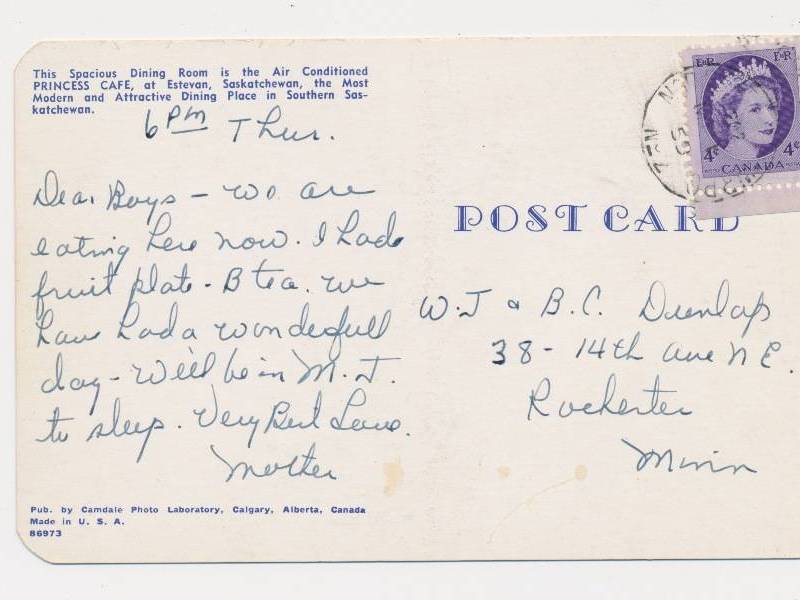 This Spacious Dining Room is the Air Conditioned
PRINCESS CAFE, at Estevan, Saskatchewan, the Most
Modern and Attractive Dining Place in Southern Sas-
katchewan.
6 PM Thur.
Dear Boys - We are
eating here now. I had a
fruit plate - B tea. We
have had a wonderfull
day - We'll be in M. J.
to sleep. Very Best Love.
Mother
Pub. by Camdale Photo Laboratory, Calgary, Alberta, Canada
Made in U. S. A.
86973
E II R E II R
4¢ 4¢
CANADA
POST CARD
W. J & B. C. Dunlap
38 - 14th Ave N E.
Rochester
Minn